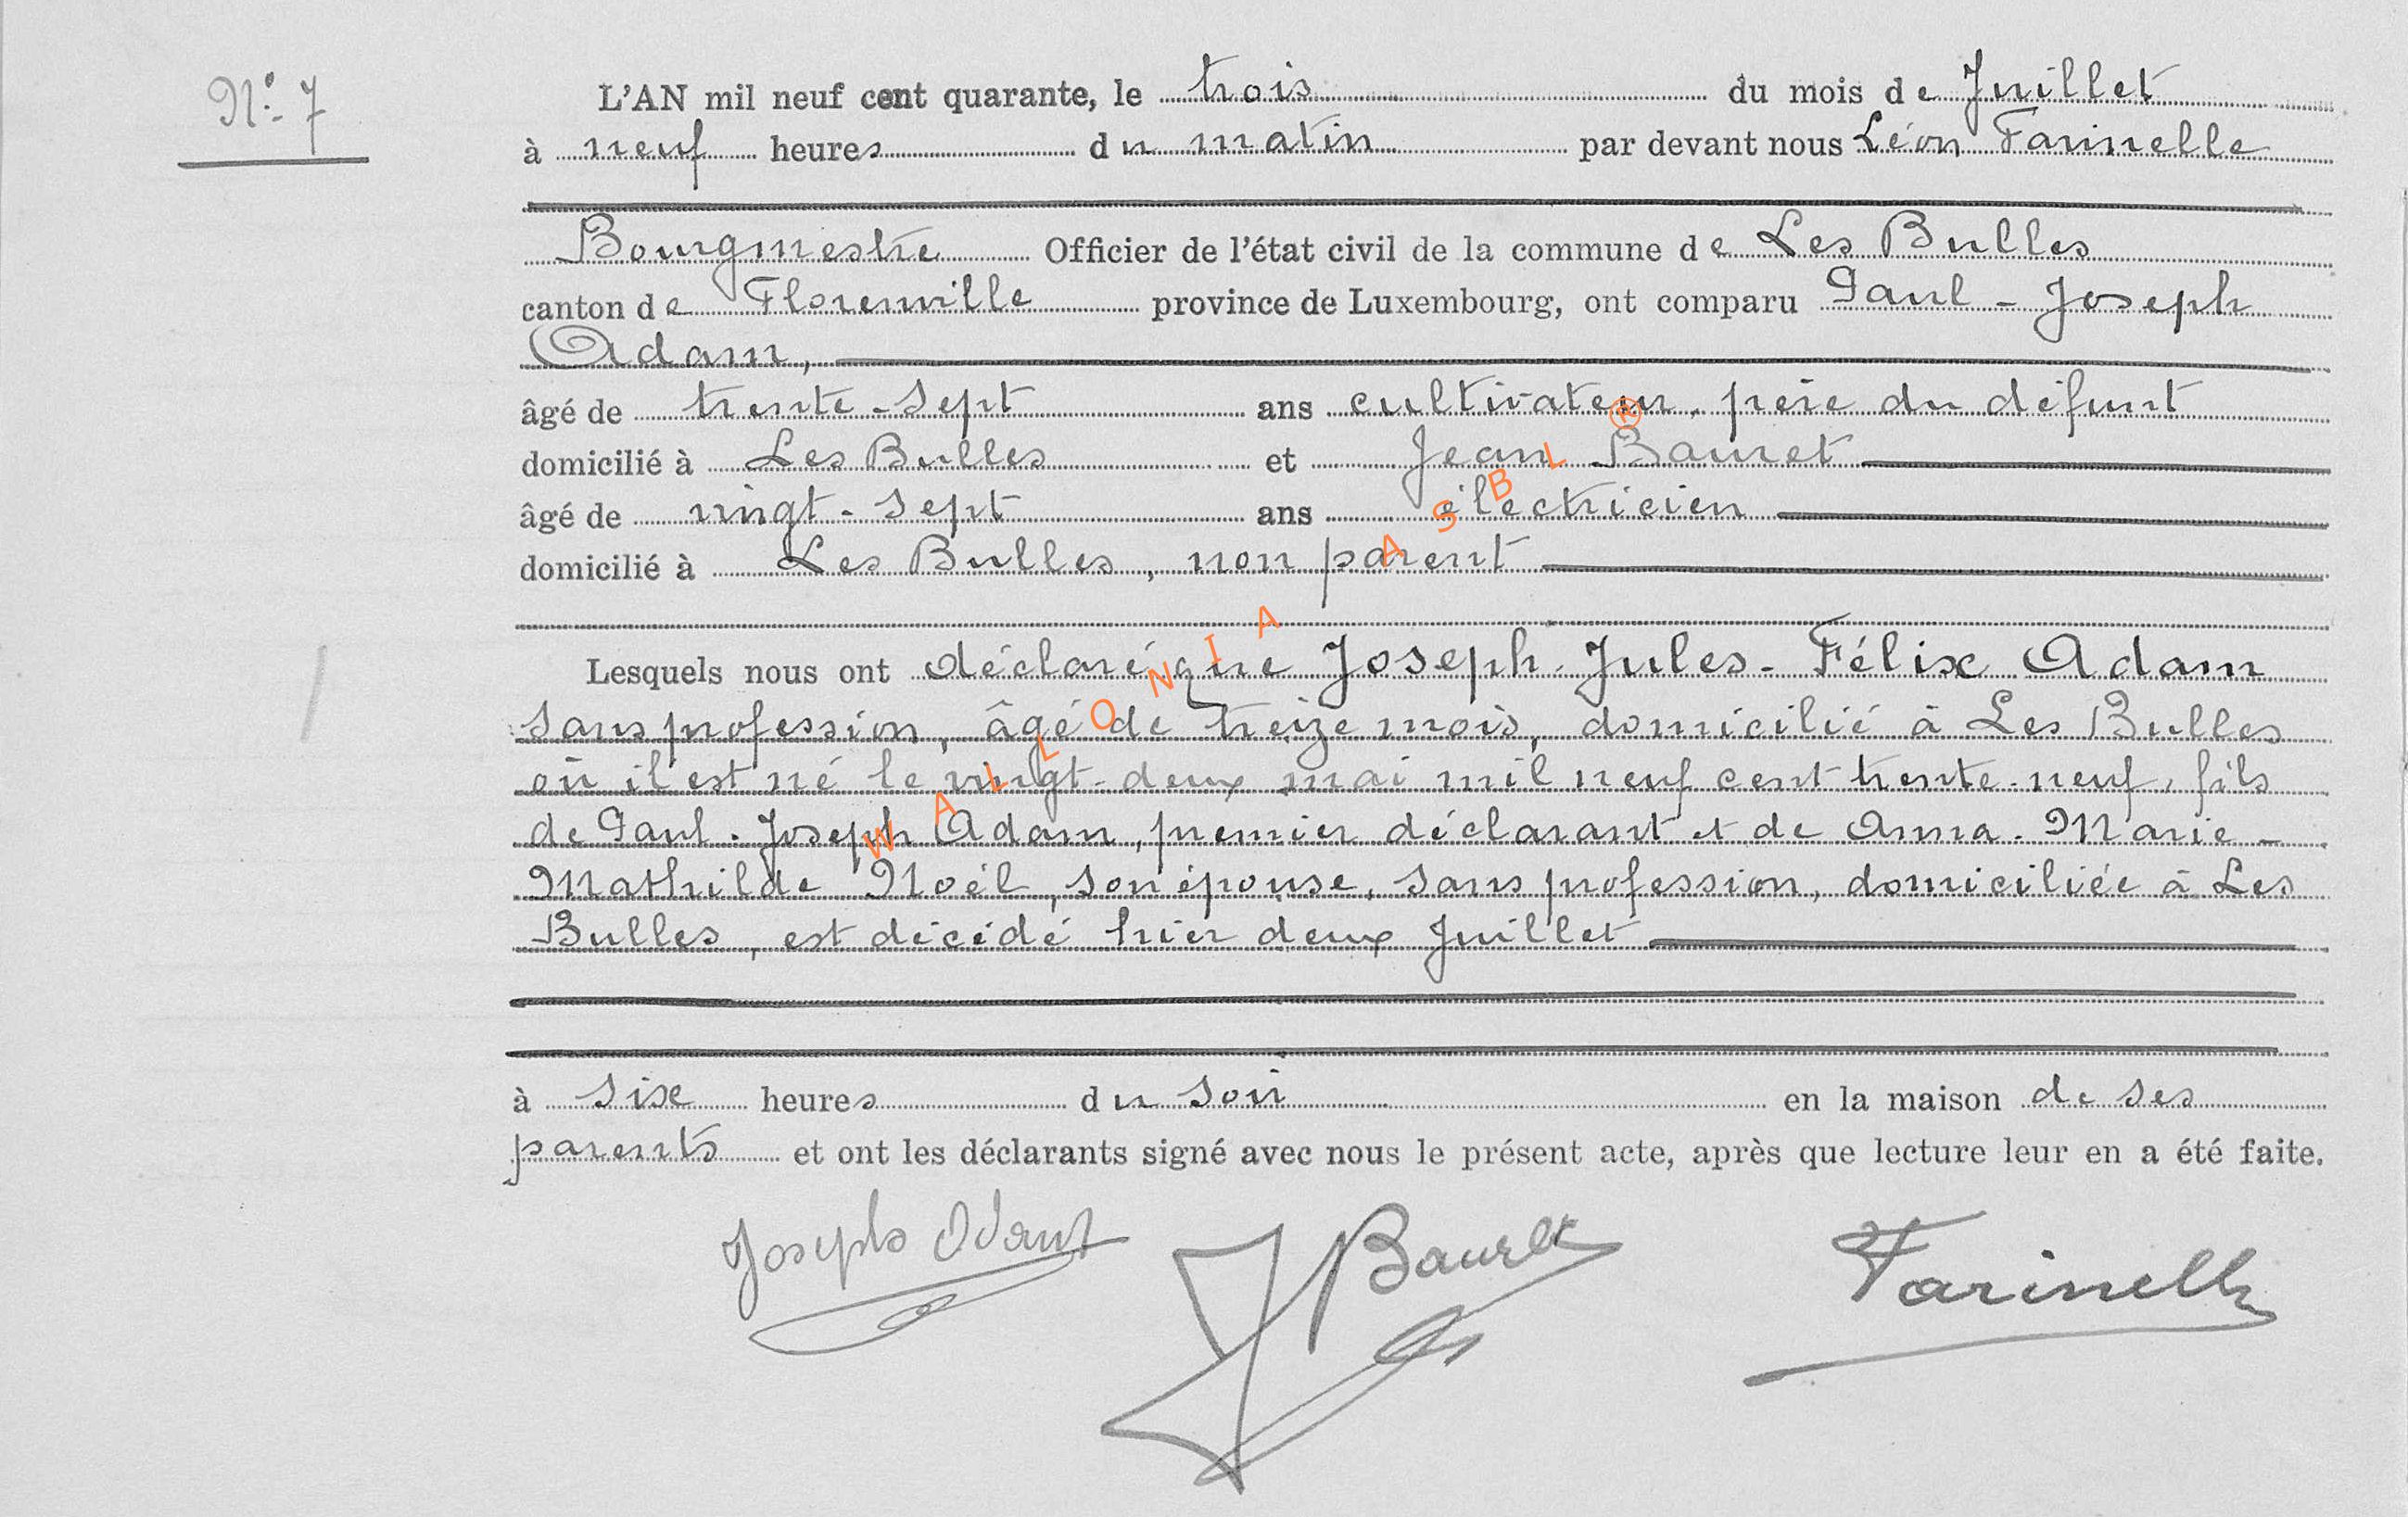 N° 7
L'AN mil neuf cent quarante, le trois du mois de Juillet
à neuf heures du matin par devant nous Léon Farinelle
Bourgmestre Officier de l'état civil de la commune de Les Bulles
canton de Florenville province de Luxembourg, ont comparu Paul-Joseph
Adam,
âgé de trente-sept ans cultivateur, père du défunt
domicilié à Les Bulles et Jean Bauret
âgé de vingt-sept ans électricien
domicilié à Les Bulles, non parent
Lesquels nous ont déclaré que Joseph-Jules-Félix Adam
sans profession, âgé de treize mois, domicilié à Les Bulles
où il est né le vingt-deux mai mil neuf cent trente-neuf, fils
de Paul-Joseph Adam, premier déclarant et de Anna-Marie-
Mathilde Noël, son épouse, sans profession, domiciliée à Les
Bulles, est décédé hier deux Juillet
à six heures du soir en la maison de ses
parents et ont les déclarants signé avec nous le présent acte, après que lecture leur en a été faite.
Joseph Adam J Bauret Farinelle
WALLONIA ASBL ®